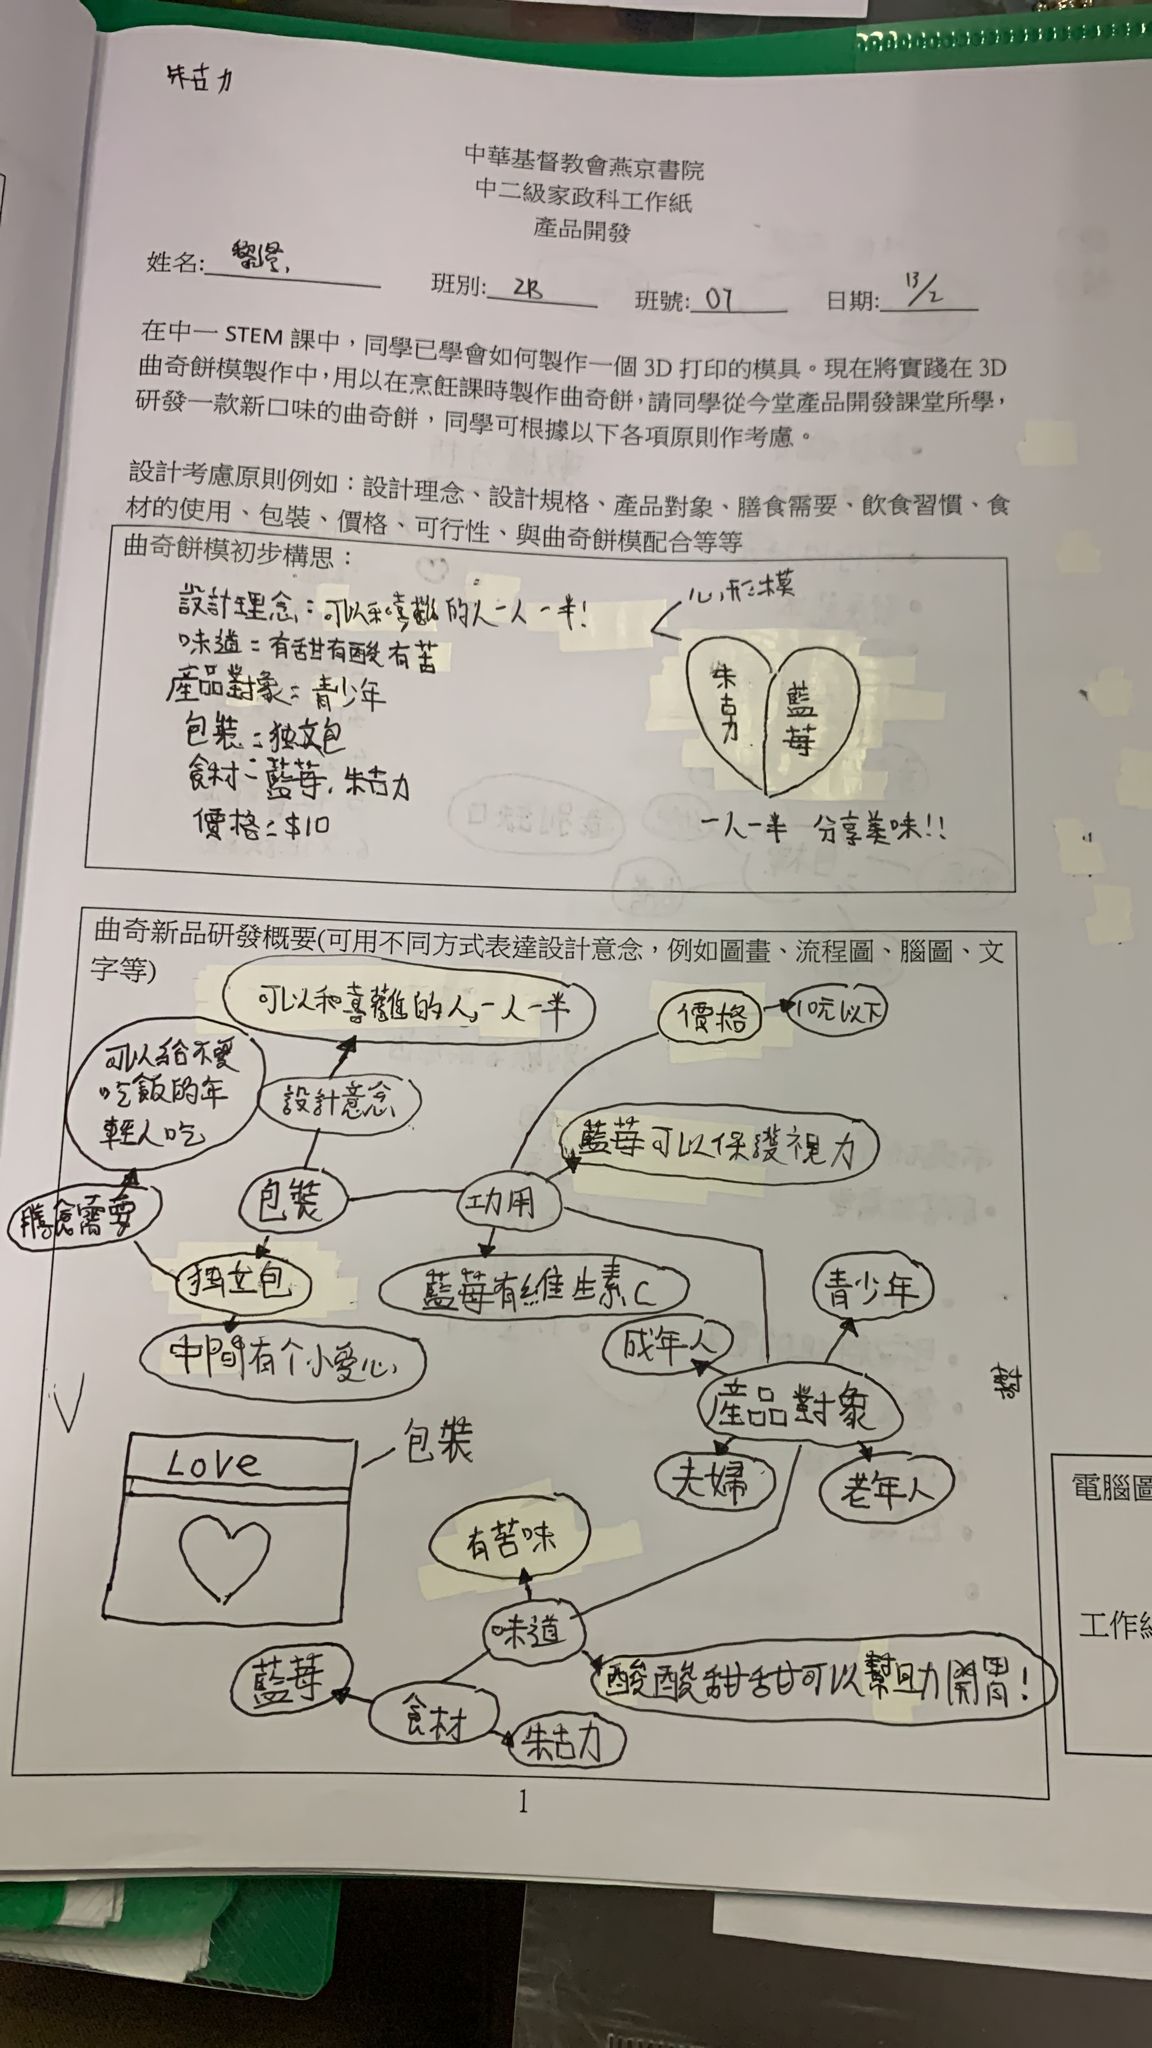 朱古力
中華基督教會燕京書院
中二級家政科工作紙
產品開發
姓名: 班別: 2B 班號: 07 日期: 13/2
在中一 STEM 課中，同學已學會如何製作一個 3D 打印的模具。現在將實踐在 3D
曲奇餅模製作中，用以在烹飪課時製作曲奇餅，請同學從今堂產品開發課堂所學，
研發一款新口味的曲奇餅，同學可根據以下各項原則作考慮。
設計考慮原則例如：設計理念、設計規格、產品對象、膳食需要、飲食習慣、食
材的使用、包裝、價格、可行性、與曲奇餅模配合等等
曲奇餅模初步構思：
設計理念：可以和喜歡的人一人一半!
心形模
味道：有甜有酸有苦
產品對象：青少年
朱古力
藍莓
包裝：独立包
食材：藍莓，朱古力
價格：$10
一人一半 分享美味!!
曲奇新品研發概要(可用不同方式表達設計意念，例如圖畫、流程圖、腦圖、文
字等)
可以和喜歡的人一人一半
價格
10元以下
可以給不愛
吃飯的年
輕人吃
設計意念
藍莓可以保護視力
膳食需要
包裝
功用
独立包
藍莓有維生素C
青少年
中間有个小愛心
成年人
產品對象
幫
包裝
夫婦
老年人
Love
有苦味
電腦圖
味道
酸酸甜甜可以幫助開胃!
工作紙
藍莓
食材
朱古力
1